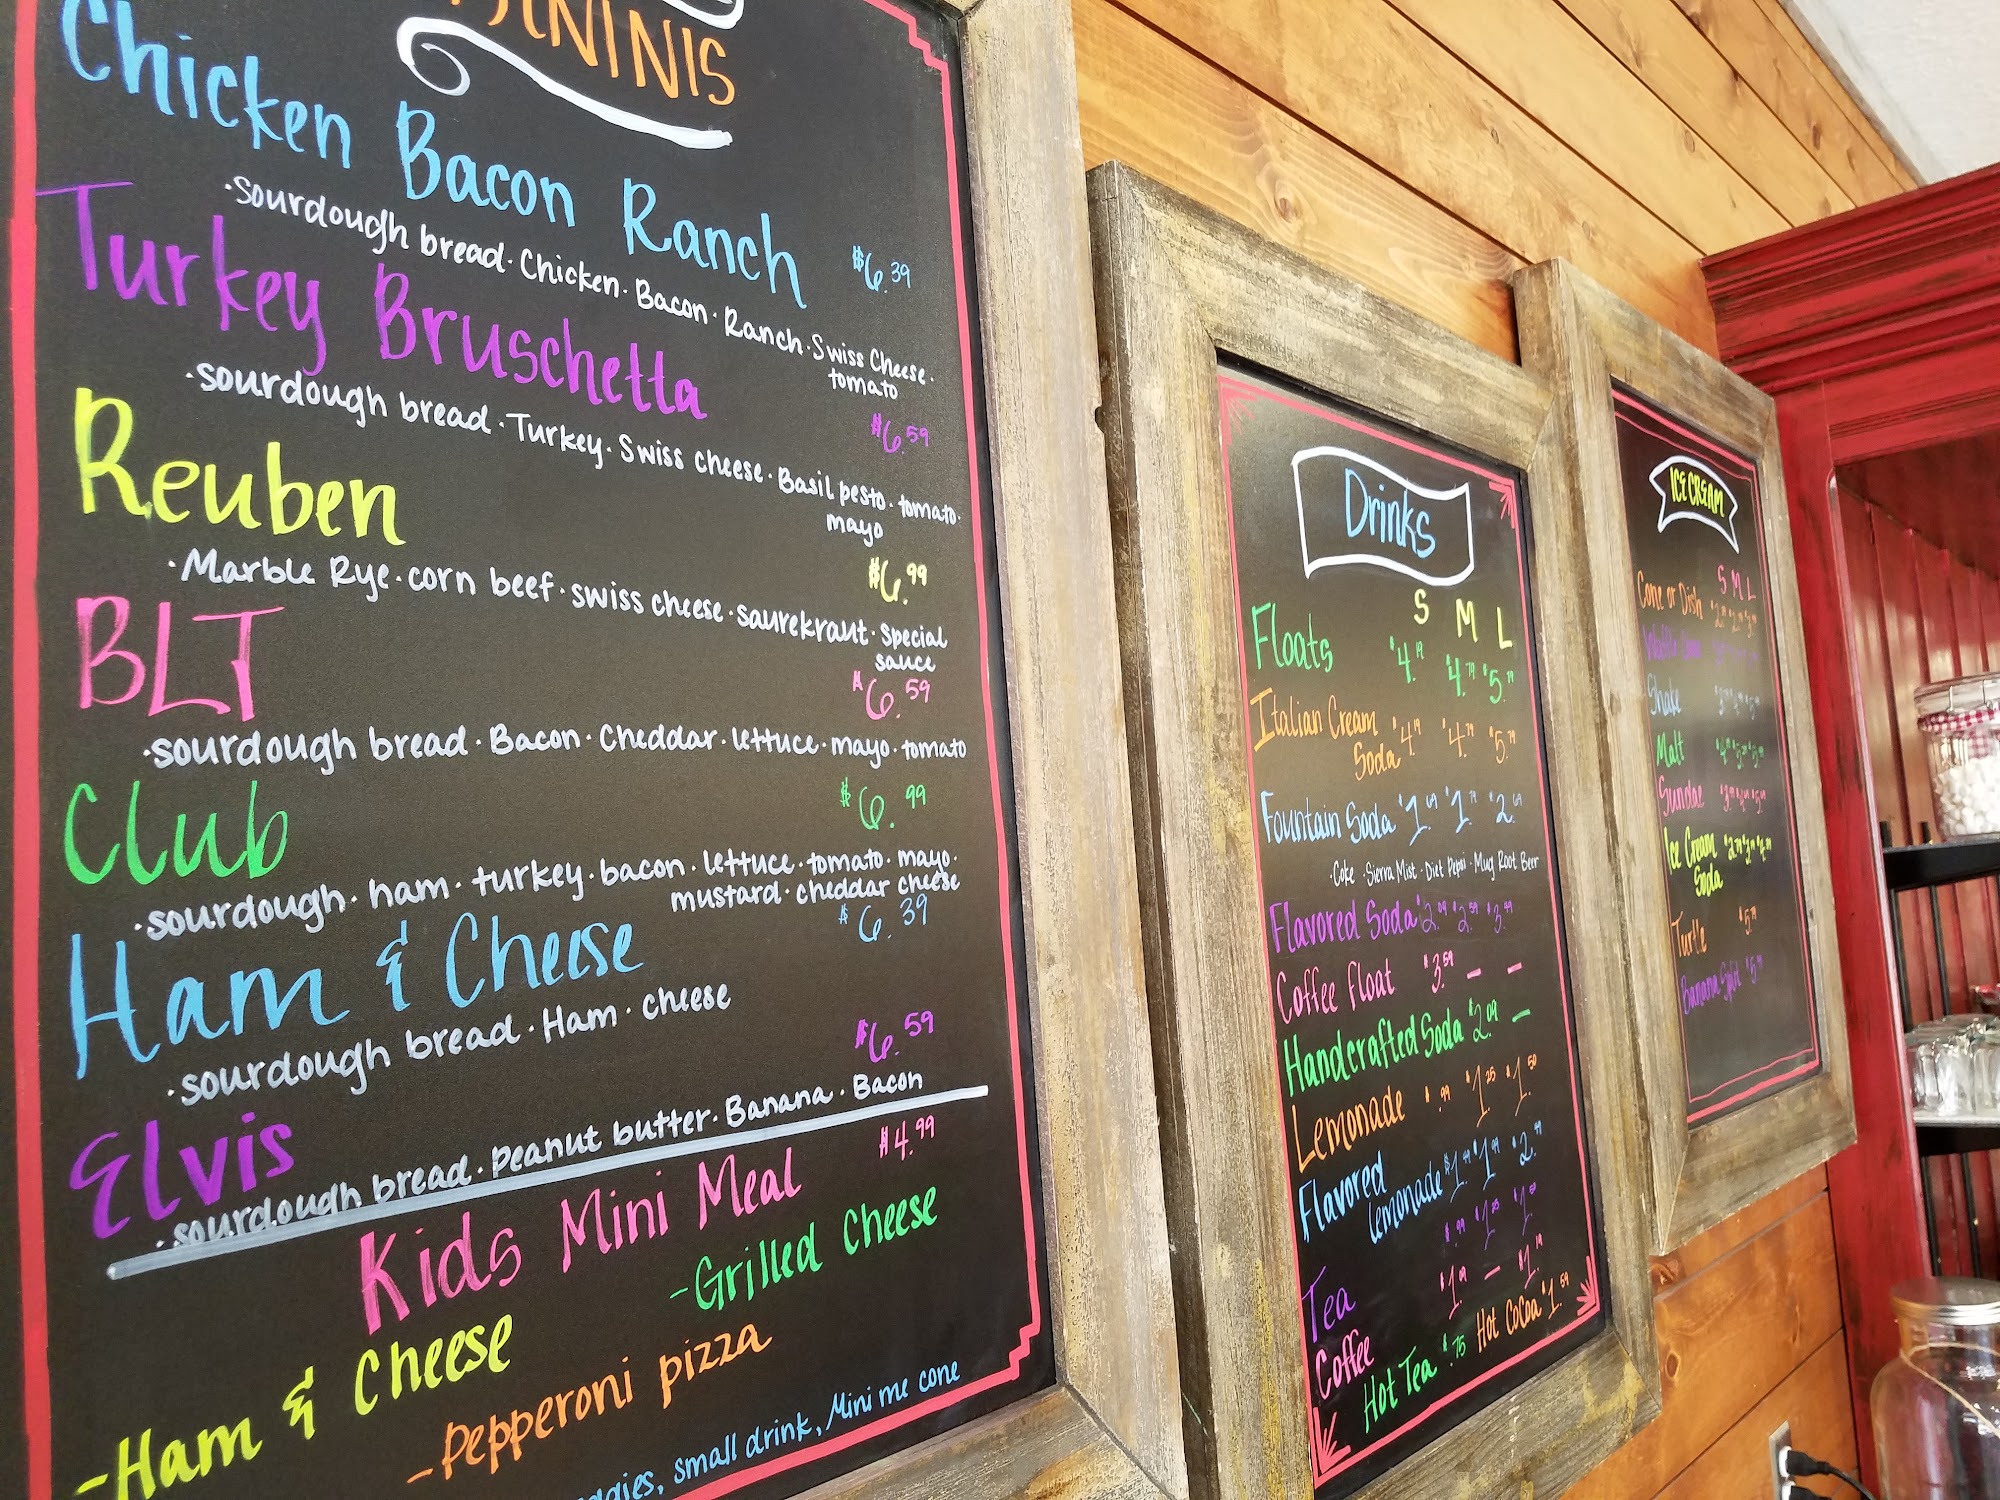 PANINIS
Chicken Bacon Ranch $6.39
·sourdough bread·Chicken·Bacon·Ranch·Swiss Cheese·
tomato
Turkey Bruschetta $6.59
·sourdough bread·Turkey·Swiss cheese·Basil pesto·tomato·
mayo
Reuben $6.99
·Marble Rye·corn beef·swiss cheese·saurekraut·special
sauce
BLT $6.59
·sourdough bread·Bacon·Cheddar·lettuce·mayo·tomato
Club $6.99
·sourdough·ham·turkey·bacon·lettuce·tomato·mayo·
mustard·cheddar cheese
Ham & Cheese $6.39
·sourdough bread·Ham·cheese
Elvis $6.59
·sourdough bread·peanut butter·Banana·Bacon
Kids Mini Meal $4.99
-Grilled Cheese
-Ham & Cheese
-Pepperoni pizza
small drink, Mini me cone
Drinks
S M L
Floats $4.19 $4.79 $5.79
Italian Cream
Soda $4.19 $4.79 $5.79
Fountain Soda $1.69 $1.79 $2.69
·Coke ·Sierra Mist ·Diet Pepsi ·Mug Root Beer
Flavored Soda $2.09 $2.59 $3.49
Coffee float $3.59 - -
Handcrafted Soda $2.09 -
Lemonade $.99 $1.25 $1.50
Flavored
lemonade $1.49 $1.99 $2.49
Tea $.99 $1.25 $1.50
Coffee $1.09 - $1.19
Hot Tea $.75 Hot Cocoa $1.59
ICE CREAM
S M L
Cone or Dish
Waffle Cone
Shake
Malt
Sundae
Ice Cream
Soda
Turtle
Banana Split